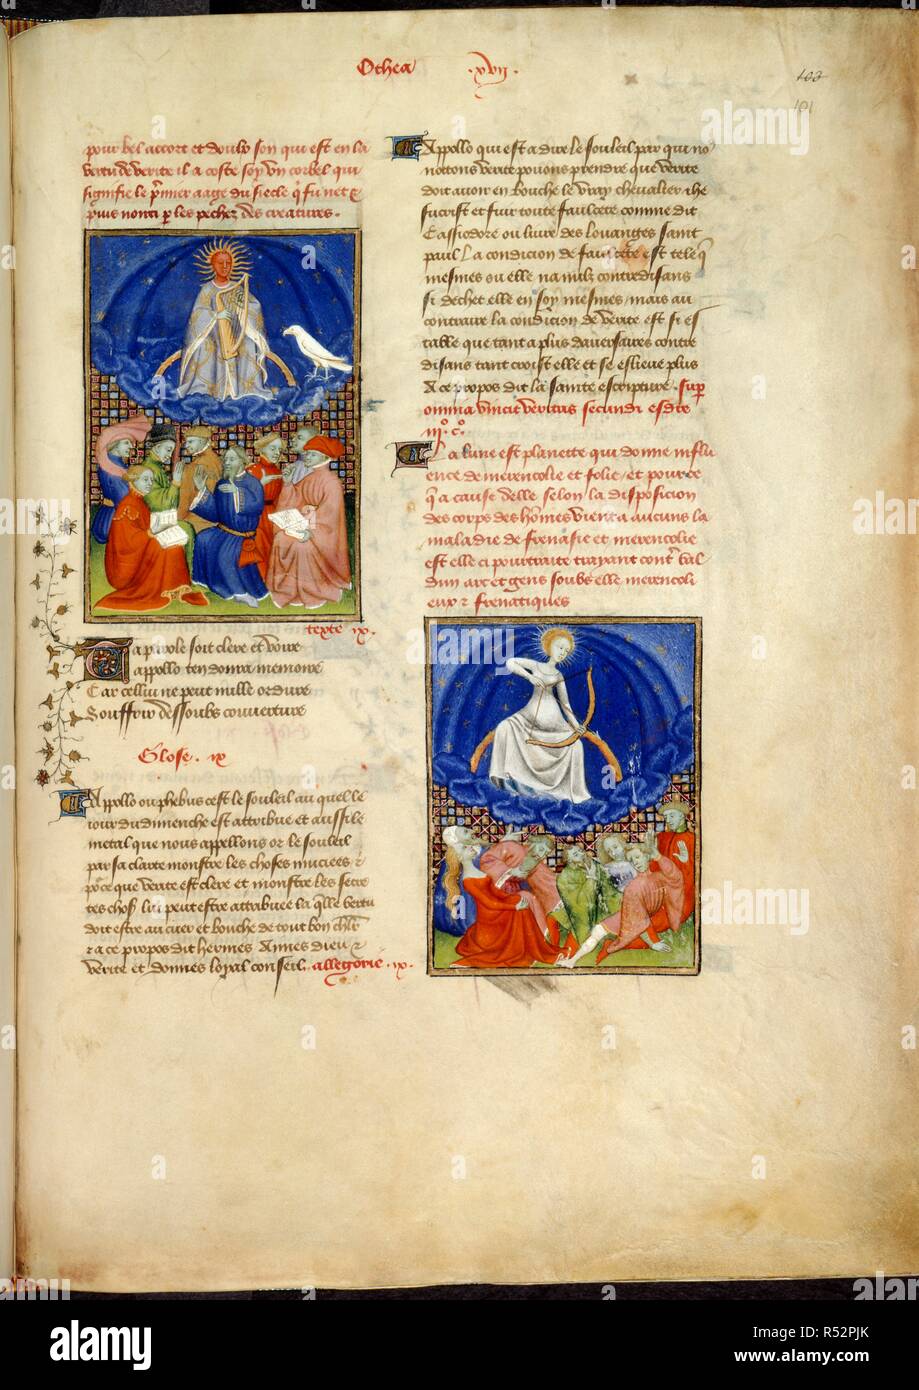 Othea .xvij.
103
101
pour bel accort et doulz son qui est en la
vertu de verite il a coste soy un corbel qui
signifie le p̄mier aage du siecle q̄ fu net et
puis norci p̄ les pechez des creatures.
texte ix.
Ta parole soit clere et voire
appollo ten donra memoire
Car cellui ne peut nulle ordure
Souffrir dessoubz couverture
Glose. ix
Appollo ou phebus cest le souleil au quel le
iour du dimenche est attribue et aussi le
metal que nous appellons or le souleil
par sa clarte monstre les choses muciees et
pource que verite est clere et monstre les secre
tes choses lui peut estre attribuee la q̄lle vertu
doit estre au cuer et bouche de tout bon chlr̄
et a ce propos dit hermes Aimes dieu et
verite et donnes loyal conseil. allegorie .ix.
Appollo qui est a dire le souleil par qui no
nottons verite pouons prendre que verite
doit avoir en bouche le vray chevalier ihe
sucrist et fuir toute faulcete comme dit
Cassiodore ou livre des louanges saint
paul La condicion de faulcete est tele q̄
mesmes ou elle na nulz contredisans
si dechet elle en soy mesmes mais au
contraire la condicion de verite est si es
table que tant a plus daversaires contre
disans tant croist elle et se eslieve plus
A ce propos dit la sainte escripture. sup̄
omnia vincit veritas secundi esdre
iijº. cº.
La lune est planette qui donne influ
ence de merencolie et folie et pource
q̄ a cause delle selon la disposicion
des corps des hom̄es vient a aucuns la
maladie de frenasie et merencolie
est elle ci pourtraite trayant contr̄ val
dun arc et gens soubz elle merencoli
eux et frenatiques
alamy
Image ID: R52PJK
www.alamy.com